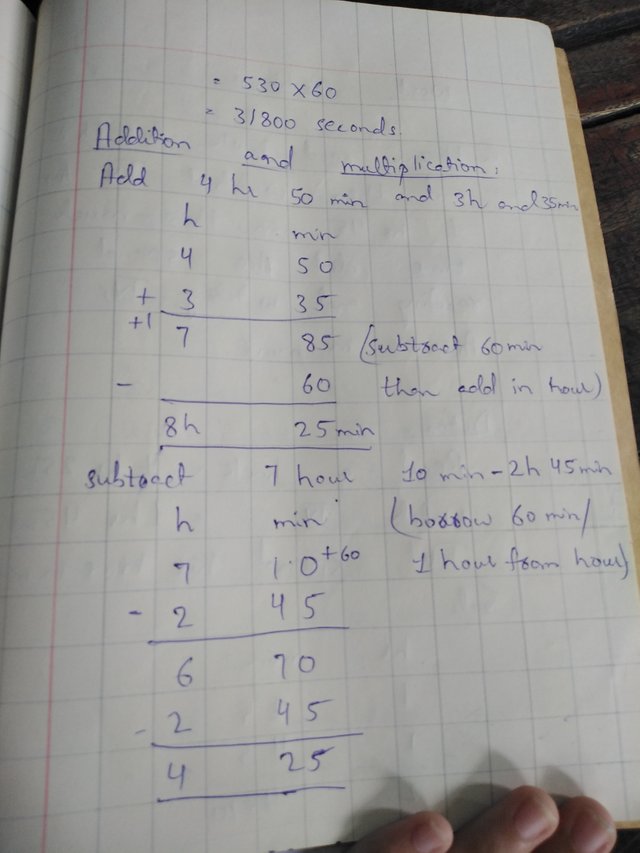 = 530 x 60
= 31800 seconds
Addition aand multiplication:
Add 4 hr 50 min and 3h and 35min
h min
4 50
+ 3 35
+1 7 85 (subtract 60min
- 60 then add in hour)
8h 25min
subtract 7 hour 10 min - 2h 45min
h min (borrow 60 min/
7 10 +60 1 hour from hour)
- 2 45
6 70
- 2 45
4 25